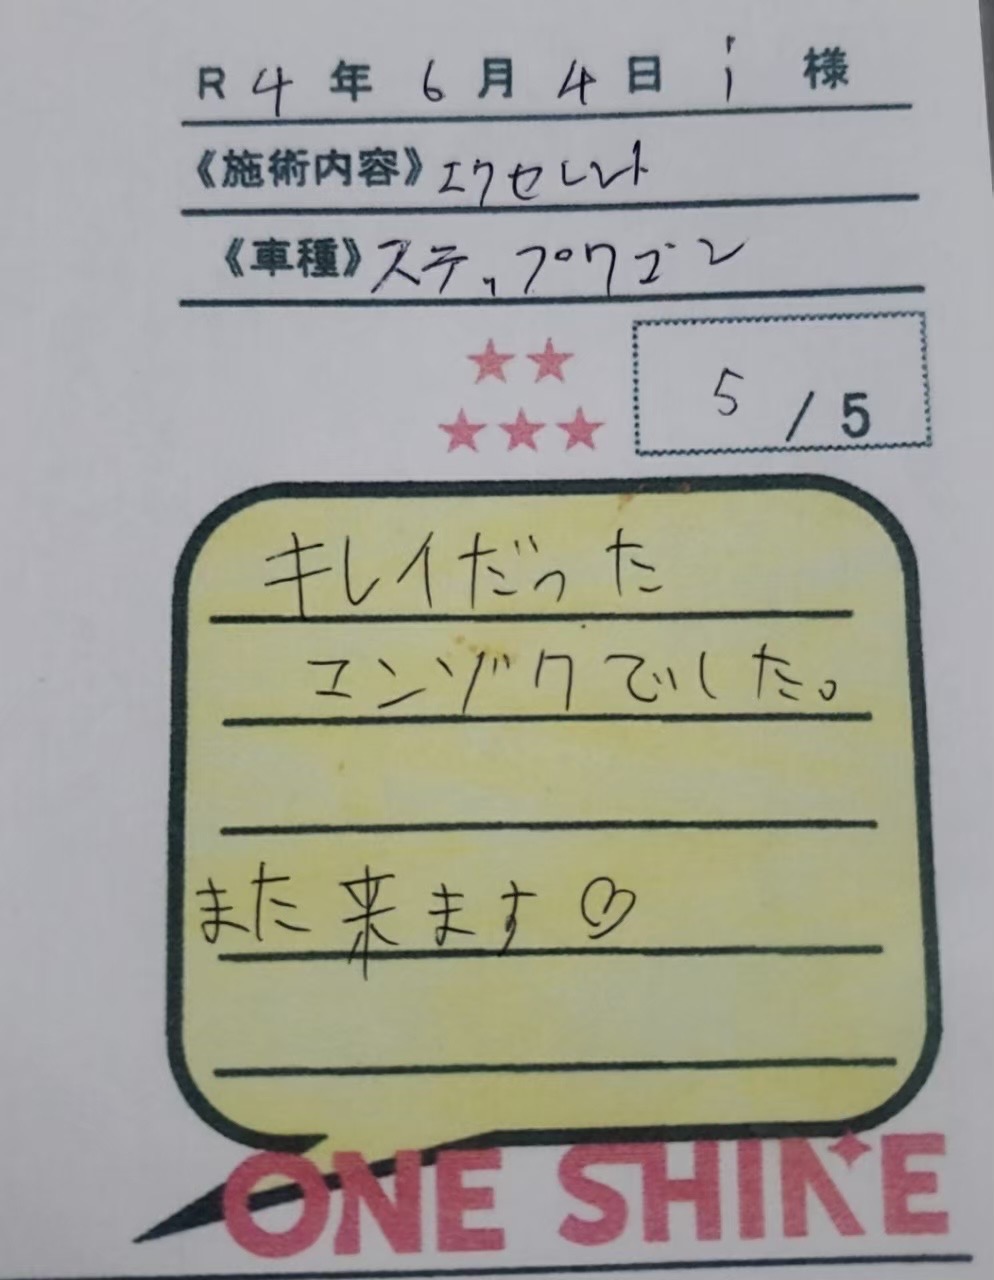 R4年6月4日 i 様
《施術内容》エクセレント
《車種》ステップワゴン
5/5
キレイだった
エンゾクでした。
また来ます♡
ONE SHINE